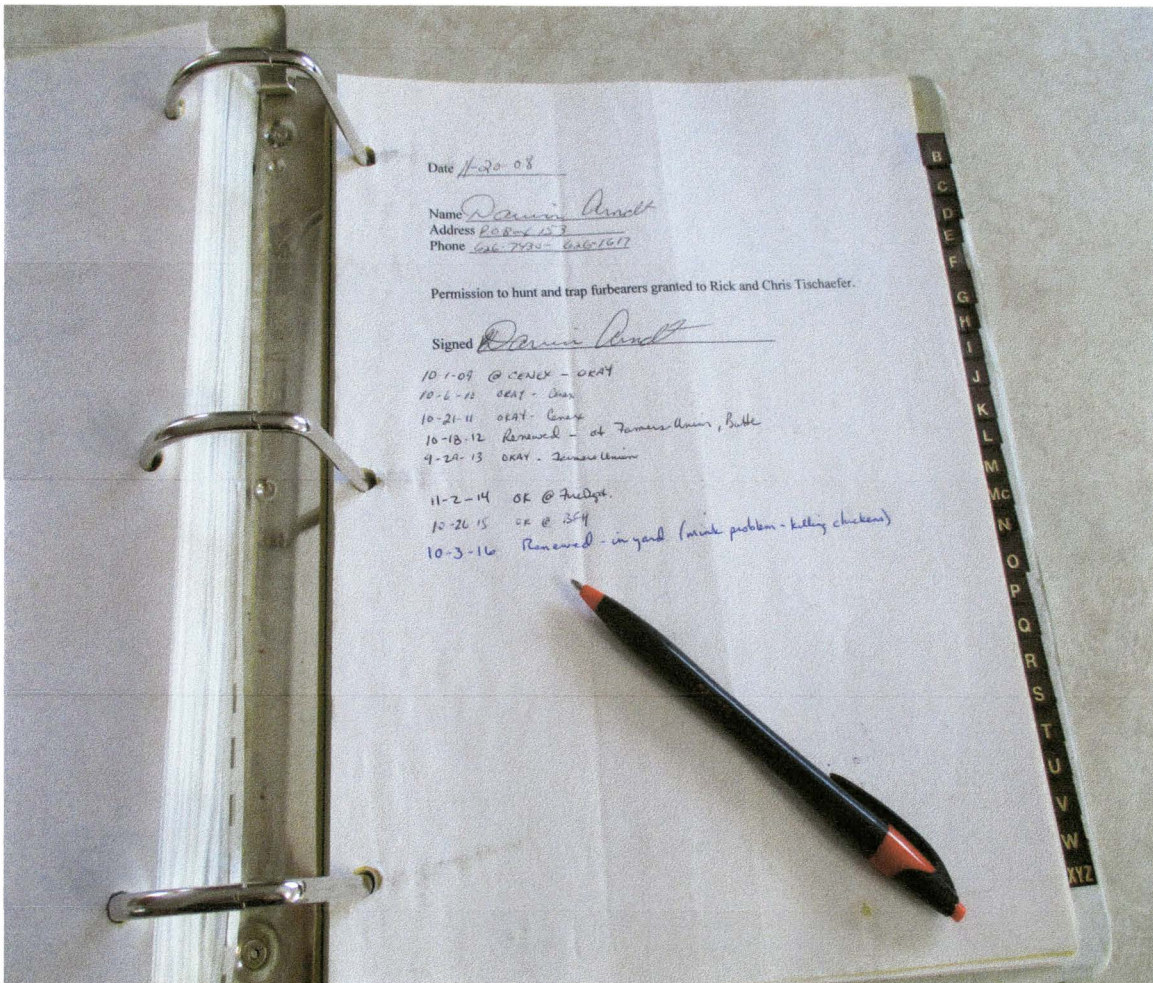 Date 11-20-08
Name Darwin Arndt
Address P.O. Box 153
Phone 626-7430 - 626-1617
Permission to hunt and trap furbearers granted to Rick and Chris Tischaefer.
Signed Darwin Arndt
10-1-09 @ CENEX - OKAY
10-6-10 OKAY - Cenex
10-21-11 OKAY - Cenex
10-18-12 Renewed - at Farmers Union, Butte
9-29-13 OKAY - Farmers Union
11-2-14 OK @ Fire Dept.
10-26-15 OK @
10-3-16 Renewed - in yard (mink problem - killing chickens)
B
C
D
E
F
G
H
I
J
K
L
M
Mc
N
O
P
Q
R
S
T
U
V
W
XYZ